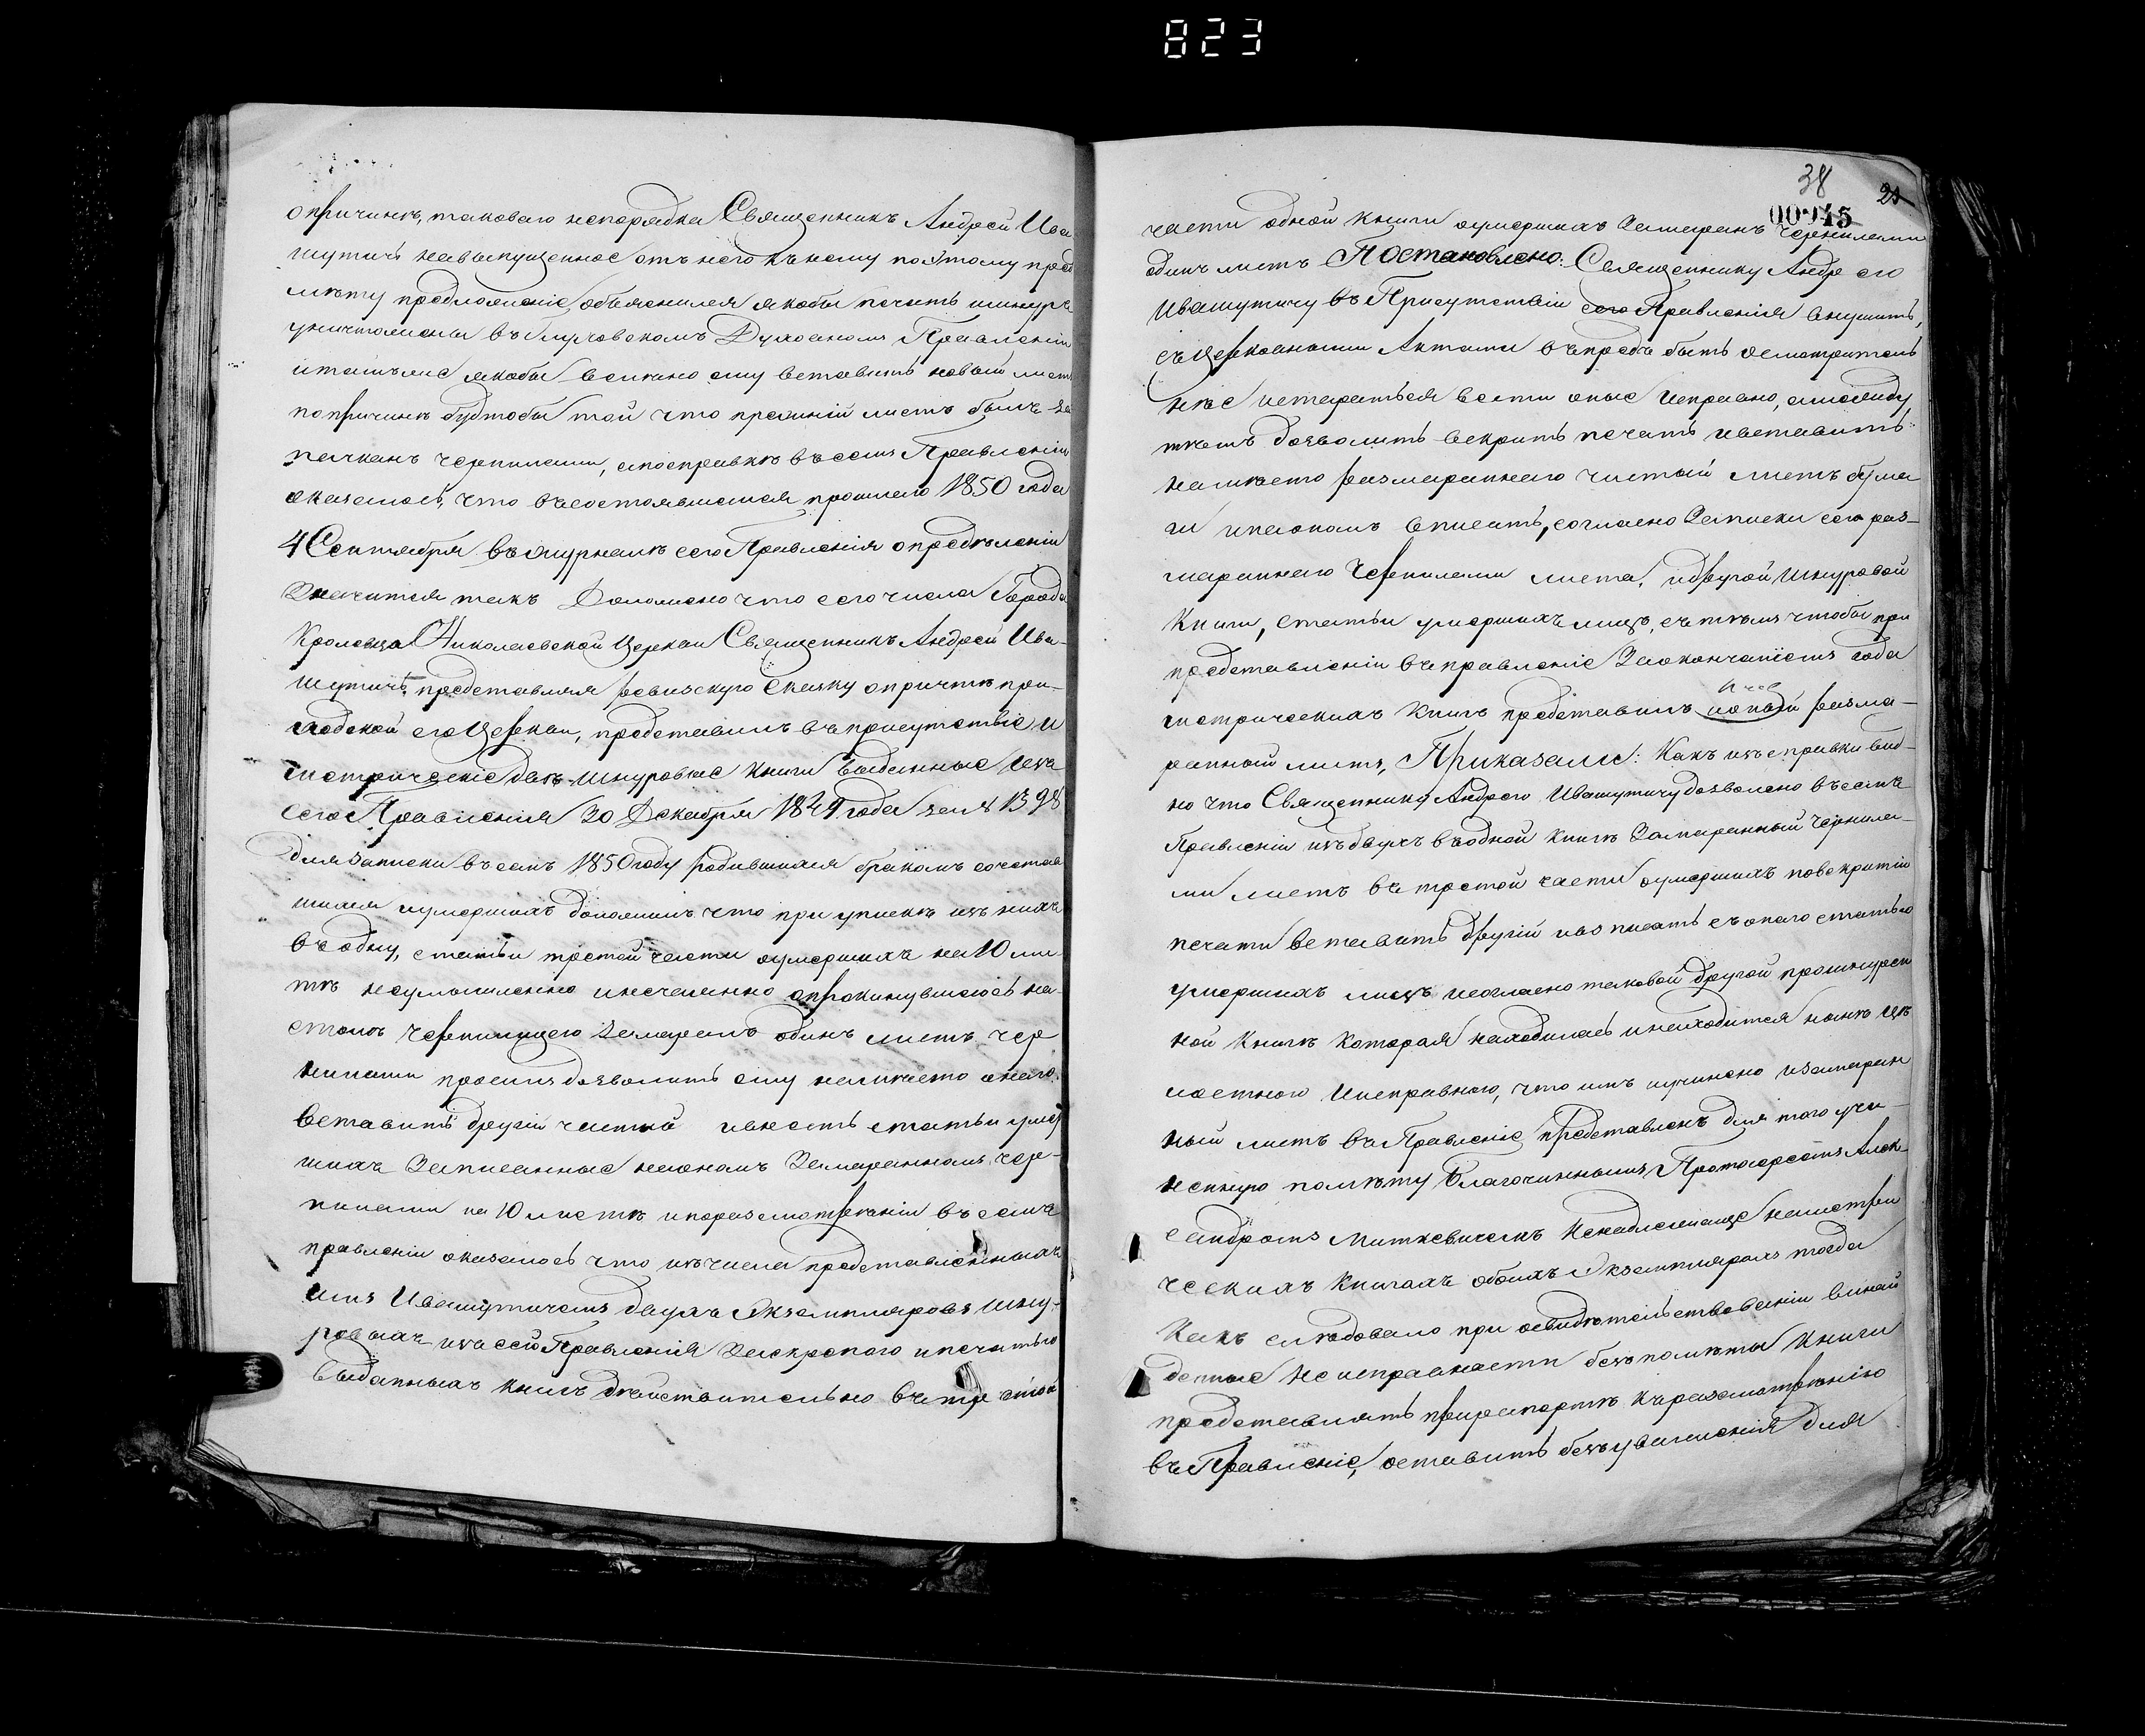 823
о причинѣ, таковаго непорядка Священникъ Андрей Ива
шутичъ на выпущенное отъ него къ нему по этому пред
мѣту предложеніе объяснился якобы печать и шнуръ
уничтожены въ Глуховскомъ Духовномъ Правленіи
и тамъ же якобы велѣно ему вставить новый листъ
по причинѣ будтобы той что прежній листъ былъ за
пачканъ чернилами, а по справкѣ въ семъ Правленіи
оказалось, что въ состоявшемся прошлаго 1850 года
4 Сентября въ журналѣ сего Правленія опредѣленіи
значится такъ Доложено что сего числа Города
Кролевца Николаевской Церкви Священникъ Андрей Ива-
шутичъ представляя ревизскую сказку о причтѣ при-
ходской его Церкви, представилъ въ присутствіе и
метрическіе двѣ шнуровые книги выданные изъ
сего Правленія 30 Декабря 1849 года за № 1398
для записки въ семъ 1850 году родившихся бракомъ сочетав
шихся и умершихъ доложилъ что при упискѣ изъ нихъ
въ одну, статьи третей части о умершихъ на 10 ли
тѣ неумышленно и нечаянно опрокинувшеюсь на-
столѣ чернилицею замаралъ одинъ листъ чер
нилами просилъ дозволить ему на мѣсто онаго
вставить другій чистый и внесть статьи умер
шихъ записанные на ономъ замаранномъ чер-
нилами на 10 листѣ и по разсмотреніи въ семъ
правленіи оказалось что изъ числа представленныхъ
имъ Ивашутичемъ двухъ Экземпляровъ шну-
ровыхъ изъ сего Правленія за скрепою и печатью
выданныхъ книгъ дѣйствительно въ третей
38
23
00045
части одной книги о умершихъ замаранъ чернилами
одинъ листъ Постановлено: Священнику Андрею
Ивашутичу въ Присутствіи сего Правленія внушить,
съ Церковными Актами въ предь быть осмотритель
нѣе и стараться вести оные исправно, а
дозволить вскрить печать и вставить
на мѣсто размараннаго чистый листъ бума
ги и на ономъ вписать, согласно записки сего раз-
мараннаго чернилами листа, и другой шнуровой
книги, статьи умершихъ лицъ, съ тѣмъ чтобы при
представленіи въ правленіе за окончаніемъ года
метрическихъ книгъ представилъ и оный разма-
ранный листъ, Приказали: Какъ изъ справки вид-
но что Священнику Андрею Ивашутичу дозволено въ семъ
Правленіи изъ двухъ въ одной книгѣ замаранный чернила-
ми листъ въ третей части о умершихъ по вскритіи
печати вставить другій и во писать съ онаго статью
умершихъ лицъ и согласно таковой другой прошнурен
ной книгѣ которая находилась и находится нынѣ цѣ
лостною и исправною, что имъ и учинено и замаран
ный листъ въ Правленіе представленъ для того учи-
ненную помѣту Благочиннымъ Протоіереемъ Алек-
сандромъ Миткевичемъ Ненадлежаще на метри
ческихъ книгахъ обоихъ Экземплярахъ тогда
какъ слѣдовало при освидѣтельствованіи
неисправности безъ помѣты книги
представлять при рапортѣ къ разсмотренію
въ Правленіе, оставить безъ уваженія для